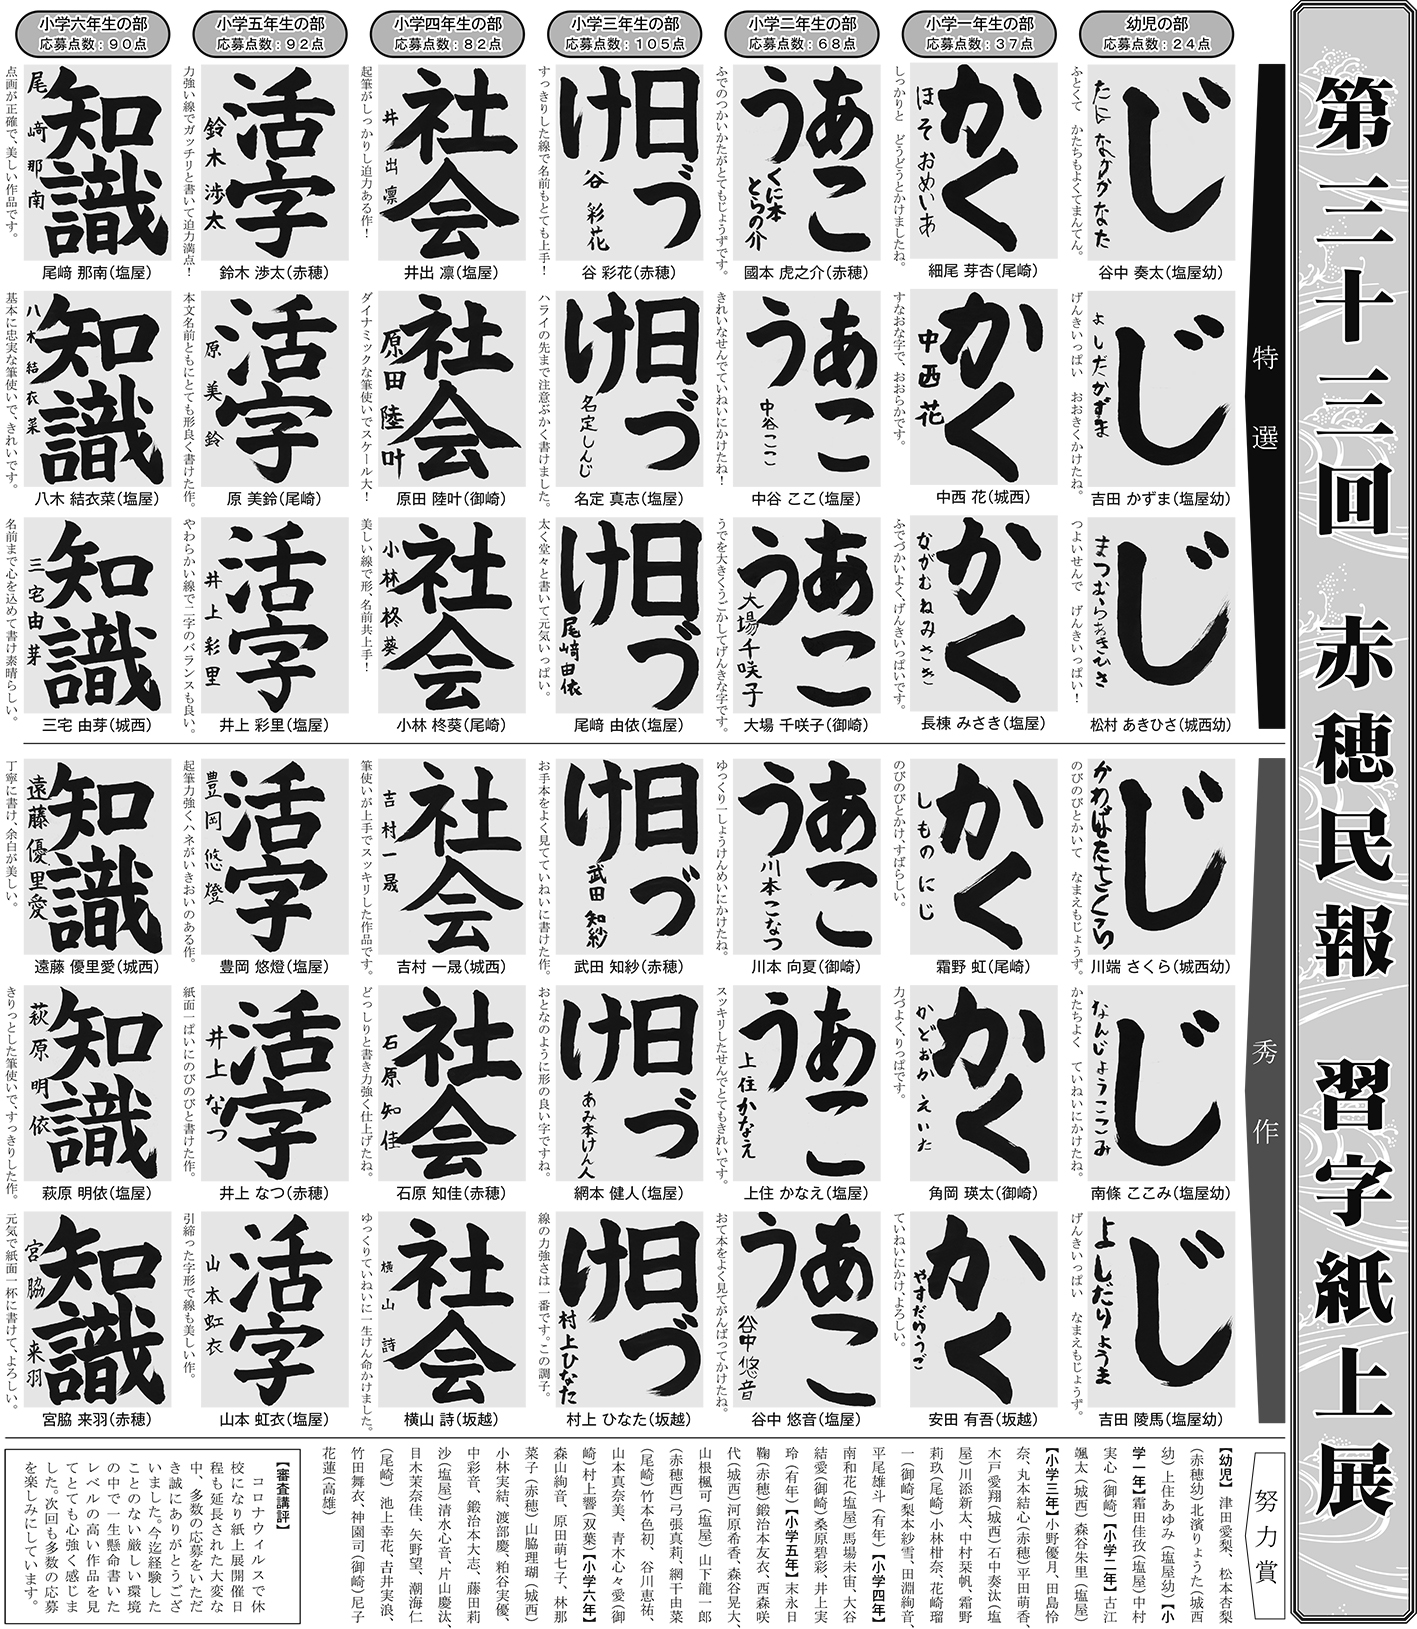 第三十三回 赤穂民報 習字紙上展
特選
幼児の部
応募点数:24点
じ
谷中 奏太(塩屋幼)
ふとくて かたちもよくてまんてん。
じ
よしだかずま
吉田 かずま(塩屋幼)
げんきいっぱい おおきくかけたね。
じ
まつむらあきひさ
松村 あきひさ(城西幼)
つよいせんで げんきいっぱい!
小学一年生の部
応募点数:37点
かく
ほそおめいあ
細尾 芽杏(尾崎)
しっかりと どうどうとかけましたね。
かく
中西花
中西 花(城西)
すなおな字で、おおらかです。
かく
ながむねみさき
長棟 みさき(塩屋)
ふでづかいよく、げんきいっぱいです。
小学二年生の部
応募点数:68点
あこう
くに本とらの介
國本 虎之介(赤穂)
ふでのつかいかたがとてもじょうずです。
あこう
中谷ここ
中谷 ここ(塩屋)
きれいなせんでていねいにかけたね!
あこう
大場千咲子
大場 千咲子(御崎)
うでを大きくうごかしてげんきな字です。
小学三年生の部
応募点数:105点
日づけ
谷彩花
谷 彩花(赤穂)
すっきりした線で名前もとても上手!
日づけ
名定しんじ
名定 真志(塩屋)
ハライの先まで注意ぶかく書けました。
日づけ
尾﨑由依
尾﨑 由依(塩屋)
太く堂々と書いて元気いっぱい。
小学四年生の部
応募点数:82点
社会
井出凛
井出 凛(塩屋)
起筆がしっかりし迫力ある作!
社会
原田陸叶
原田 陸叶(御崎)
ダイナミックな筆使いでスケール大!
社会
小林柊葵
小林 柊葵(尾崎)
美しい線で形、名前共上手!
小学五年生の部
応募点数:92点
活字
鈴木渉太
鈴木 渉太(赤穂)
力強い線でガッチリと書いて迫力満点!
活字
原美鈴
原 美鈴(尾崎)
本文名前ともにとても形良く書けた作。
活字
井上彩里
井上 彩里(塩屋)
やわらかい線で二字のバランスも良い。
小学六年生の部
応募点数:90点
知識
尾﨑那南
尾﨑 那南(塩屋)
点画が正確で、美しい作品です。
知識
八木結衣菜
八木 結衣菜(塩屋)
基本に忠実な筆使いで、きれいです。
知識
三宅由芽
三宅 由芽(城西)
名前まで心を込めて書け素晴らしい。
秀作
じ
かわばたさくら
川端 さくら(城西幼)
のびのびとかいて なまえもじょうず。
じ
なんじょうここみ
南條 ここみ(塩屋幼)
かたちよく ていねいにかけたね。
じ
よしだりょうま
吉田 陵馬(塩屋幼)
げんきいっぱい なまえもじょうず。
かく
しものにじ
霜野 虹(尾崎)
のびのびとかけ、すばらしい。
かく
かどおかえいた
角岡 瑛太(御崎)
力づよく、りっぱです。
かく
やすだゆうご
安田 有吾(坂越)
ていねいにかけ、よろしい。
あこう
川本こなつ
川本 向夏(御崎)
ゆっくり一しょうけんめいにかけたね。
あこう
上住かなえ
上住 かなえ(塩屋)
スッキリしたせんでとてもきれいです。
あこう
谷中悠音
谷中 悠音(塩屋)
おて本をよく見てがんばってかけたね。
日づけ
武田知紗
武田 知紗(赤穂)
お手本をよく見てていねいに書けた作。
日づけ
あみ本けん人
網本 健人(塩屋)
おとなのように形の良い字ですね。
日づけ
村上ひなた
村上 ひなた(坂越)
線の力強さは一番です。この調子。
社会
吉村一晟
吉村 一晟(城西)
筆使いが上手でスッキリした作品です。
社会
石原知佳
石原 知佳(赤穂)
どっしりと書き力強く仕上げたね。
社会
横山詩
横山 詩(坂越)
ゆっくりていねいに一生けん命かけました。
活字
豊岡悠燈
豊岡 悠燈(塩屋)
起筆力強くハネがいきおいのある作。
活字
井上なつ
井上 なつ(赤穂)
紙面一ぱいにのびのびと書けた作。
活字
山本虹衣
山本 虹衣(塩屋)
引締った字形で線も美しい作。
知識
遠藤優里愛
遠藤 優里愛(城西)
丁寧に書け、余白が美しい。
知識
萩原明依
萩原 明依(塩屋)
きりっとした筆使いで、すっきりした作。
知識
宮脇来羽
宮脇 来羽(赤穂)
元気で紙面一杯に書けて、よろしい。
努力賞
【幼児】 津田愛梨、松本杏梨
(赤穂幼)北濱りょうた(城西
幼)上住あゆみ(塩屋幼)【小
学一年】霜田佳孜(塩屋)中村
実心(御崎)【小学二年】古江
颯太(城西)森谷朱里(塩屋)
【小学三年】小野優月、田島怜
奈、丸本結心(赤穂)平田萌香、
木戸愛翔(城西)石中奏汰(塩
屋)川添新太、中村栞帆、霜野
莉玖(尾崎)小林柑奈、花崎瑠
一(御崎)梨本紗雪、田淵絢音、
平尾雄斗(有年)【小学四年】
南和花(塩屋)馬場未宙、大谷
結愛(御崎)桑原碧彩、井上実
玲(有年)【小学五年】末永日
鞠(赤穂)鍛治本友衣、西森咲
代(城西)河原希香、森谷晃大、
山根楓可(塩屋)山下龍一郎
(赤穂西)弓張真莉、網干由菜
(尾崎)竹本色初、谷川恵祐、
山本真奈美、青木心々愛(御
崎)村上響(双葉)【小学六年】
森山絢音、原田萌七子、林那
菜子(赤穂)山脇理瑚(城西)
沙(塩屋)清水心音、片山慶汰、
目木茉奈佳、矢野望、潮海仁
(尾崎)池上幸花、吉井実浪、
竹田舞衣、神園司(御崎)尼子
花蓮(高雄)
小林実結、渡部慶、粕谷実優、
中彩音、鍛治本大志、藤田莉
【審査講評】
コロナウィルスで休
校になり紙上展開催日
程も延長された大変な
中、多数の応募をいただ
き誠にありがとうござ
いました。今迄経験した
ことのない厳しい環境
の中で一生懸命書いた
レベルの高い作品を見
てとても心強く感じま
した。次回も多数の応募
を楽しみにしています。